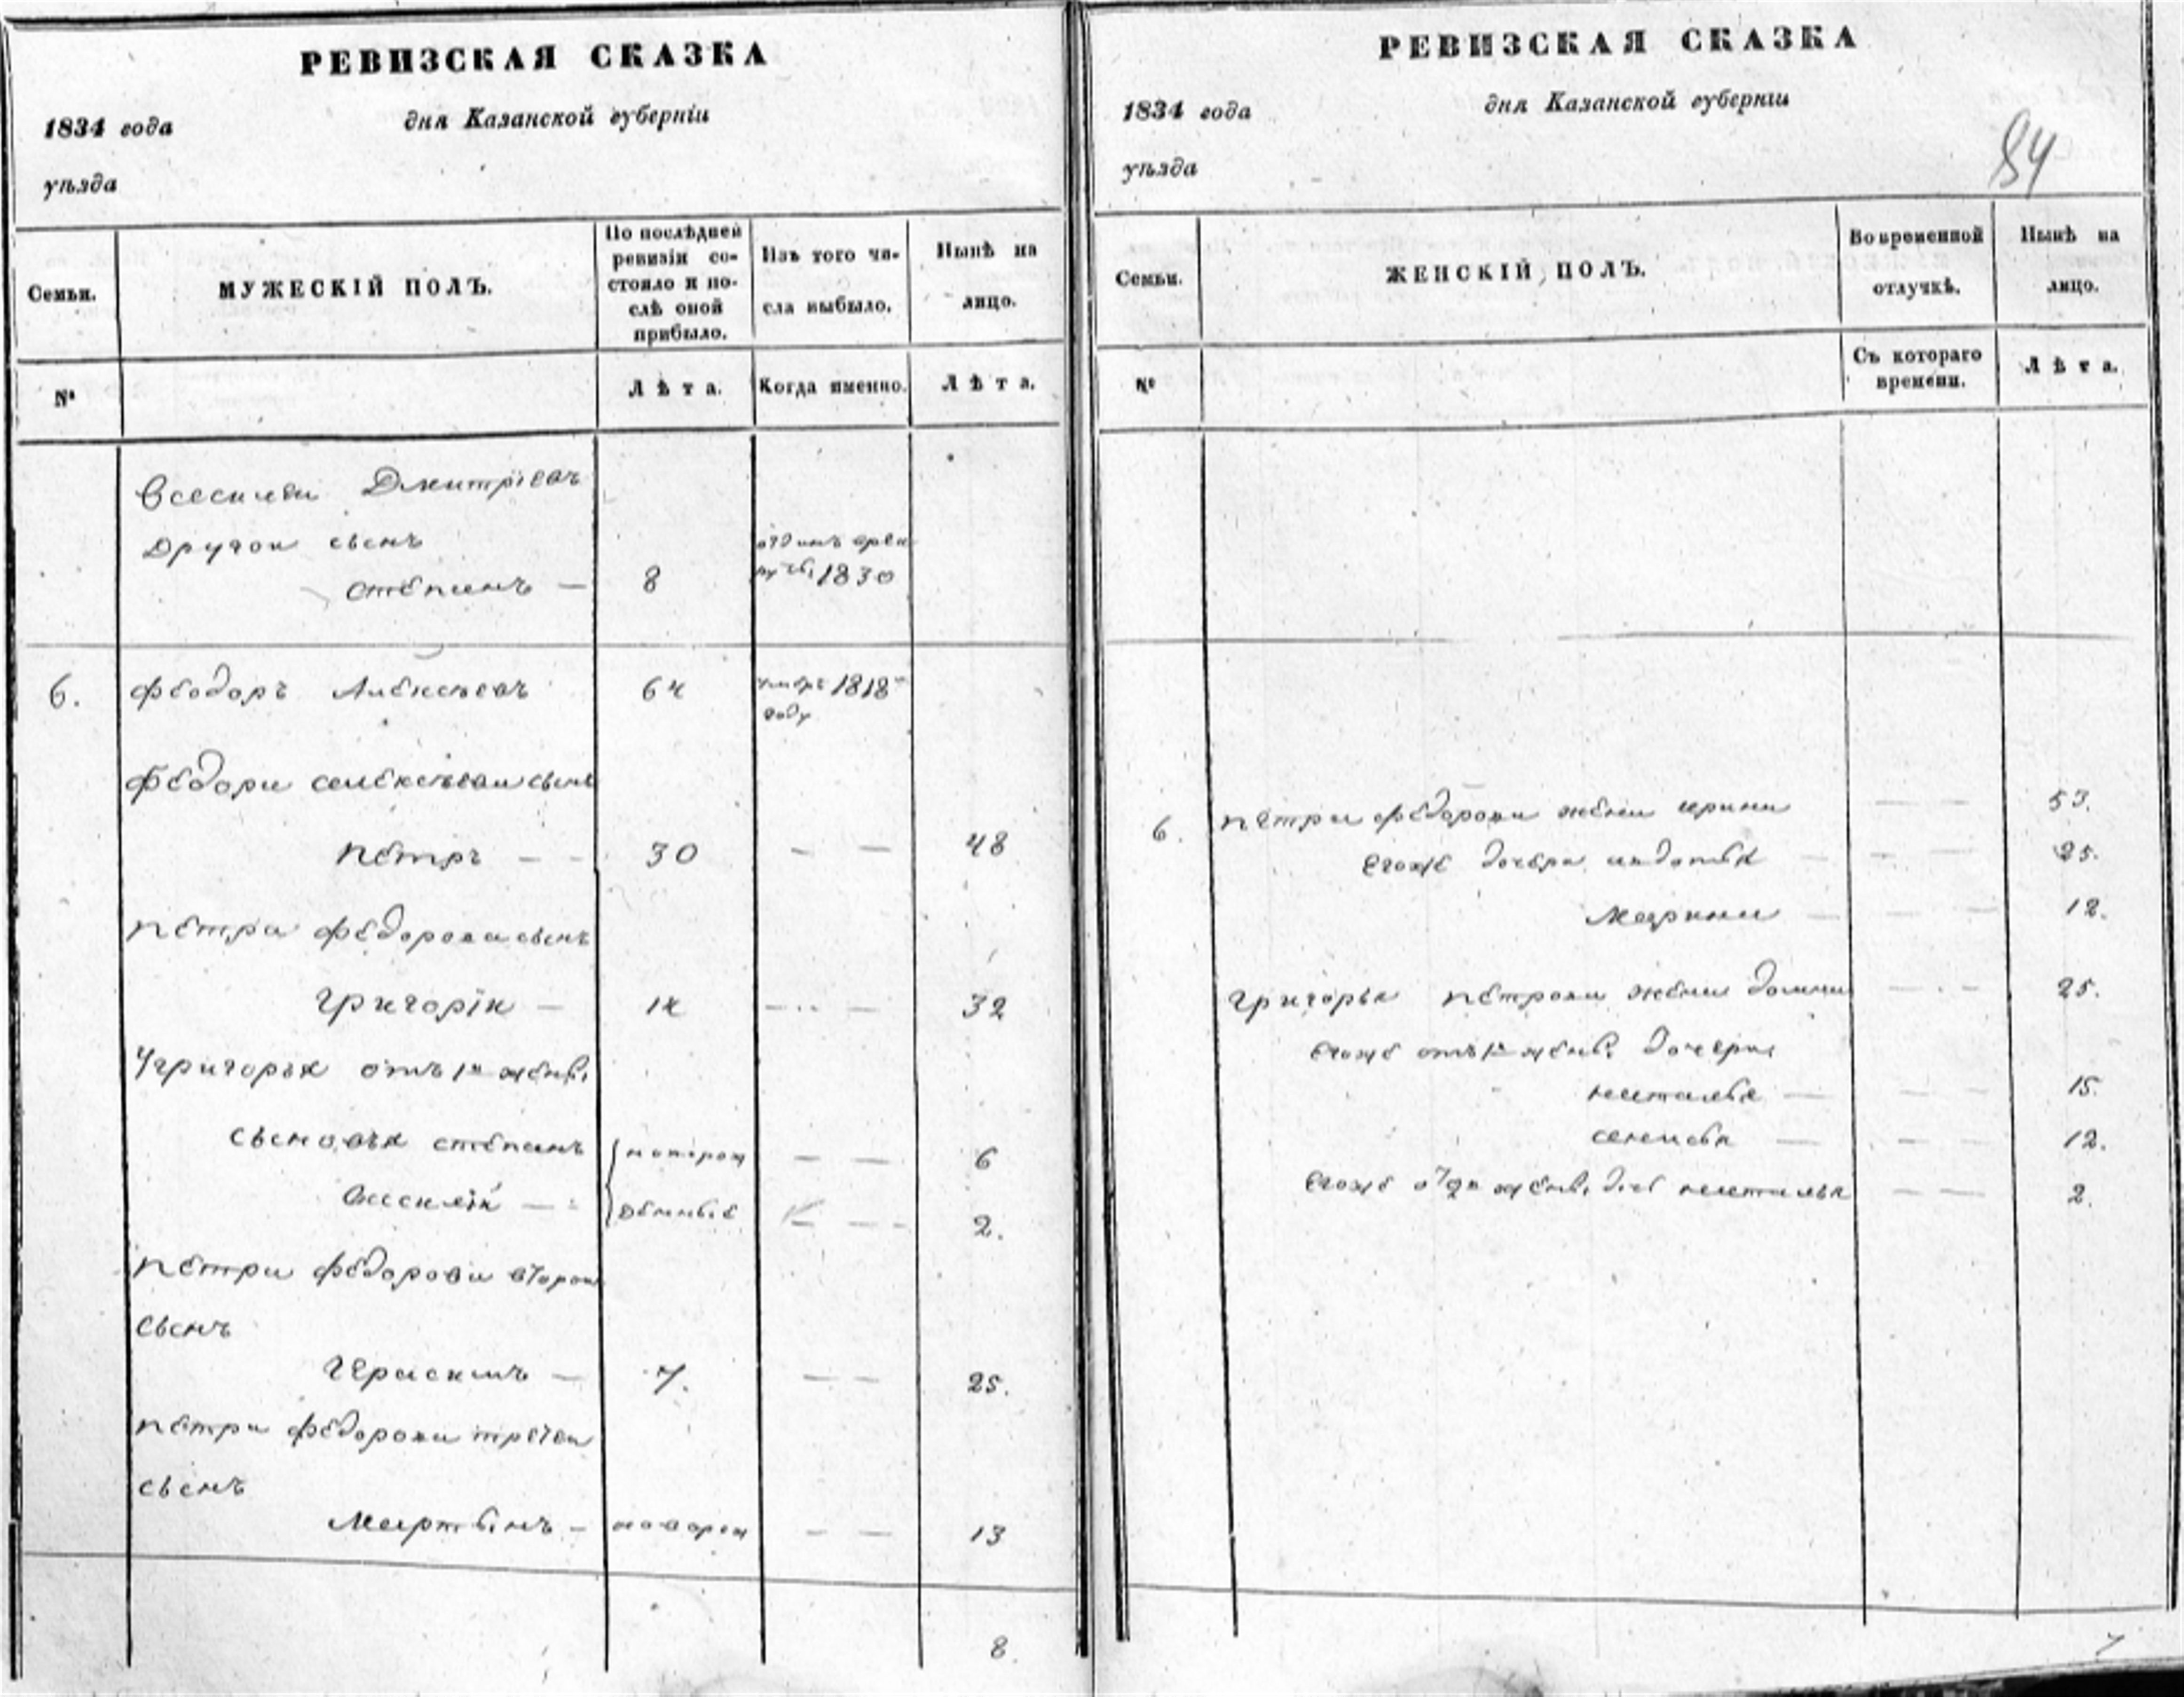 РЕВИЗСКАЯ СКАЗКА
1834 года
дня Казанской губерніи
уѣзда
Семьи.
МУЖЕСКІЙ ПОЛЪ.
По послѣдней
ревизіи со-
стояло и по-
слѣ оной
прибыло.
Изъ того чи-
сла выбыло.
Нынѣ на
лицо.
№
Лѣта.
Когда именно.
Лѣта.
Дмитріевъ
Другой сынъ
Степанъ — 8
1830
6. Федоръ Алексѣевъ 64 1818
году
Федора Алексѣева сынъ
Петръ — — 30 — — 48
Петра Федорова сынъ
Григорій — — — 32
У Григорья отъ 1й жены
сыновья степанъ — — 6
— — — 2.
Петра Федорова второй
сынъ
Герасимъ — 7. — — 25.
Петра Федорова третей
сынъ
Мартынъ — — — 13
8.
РЕВИЗСКАЯ СКАЗКА
1834 года
дня Казанской губерніи
84
уѣзда
Семьи.
ЖЕНСКІЙ ПОЛЪ.
Во временной
отлучкѣ.
Нынѣ на
лицо.
№
Съ котораго
времени.
Лѣта.
6. Петра Федорова жена ирина — — 53.
Егоже дочери — — 25.
Марина — — — 12.
Григорья Петрова жена домна — — 25.
Егоже отъ 1й жены дочери
наталья — — — 15.
— — — 12.
Егоже жены наталья — — 2.